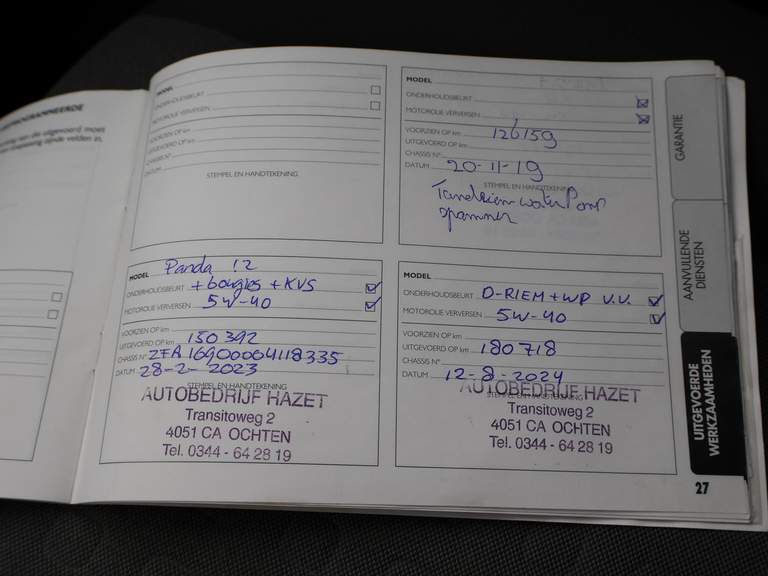 PROGRAMMEERDE
MODEL
ONDERHOUDSBEURT
MOTOROLIE VERVERSEN
VOORZIEN OP km
UITGEVOERD OP km
CHASSIS N°
DATUM
STEMPEL EN HANDTEKENING
MODEL
ONDERHOUDSBEURT
MOTOROLIE VERVERSEN
VOORZIEN OP km 126159
UITGEVOERD OP km
CHASSIS N°
DATUM 20-11-19
STEMPEL EN HANDTEKENING
Tandriem waterPomp
spanner
MODEL Panda 1.2
ONDERHOUDSBEURT + bougies + KVS
MOTOROLIE VERVERSEN 5W-40
VOORZIEN OP km
UITGEVOERD OP km 150392
CHASSIS N° ZFA16900004118335
DATUM 28-2-2023
STEMPEL EN HANDTEKENING
AUTOBEDRIJF HAZET
Transitoweg 2
4051 CA OCHTEN
Tel. 0344 - 64 28 19
MODEL
ONDERHOUDSBEURT D-RIEM + WP V.V.
MOTOROLIE VERVERSEN 5W-40
VOORZIEN OP km
UITGEVOERD OP km 180718
CHASSIS N°
DATUM 12-8-2024
STEMPEL EN HANDTEKENING
AUTOBEDRIJF HAZET
Transitoweg 2
4051 CA OCHTEN
Tel. 0344 - 64 28 19
GARANTIE
AANVULLENDE
DIENSTEN
UITGEVOERDE
WERKZAAMHEDEN
27